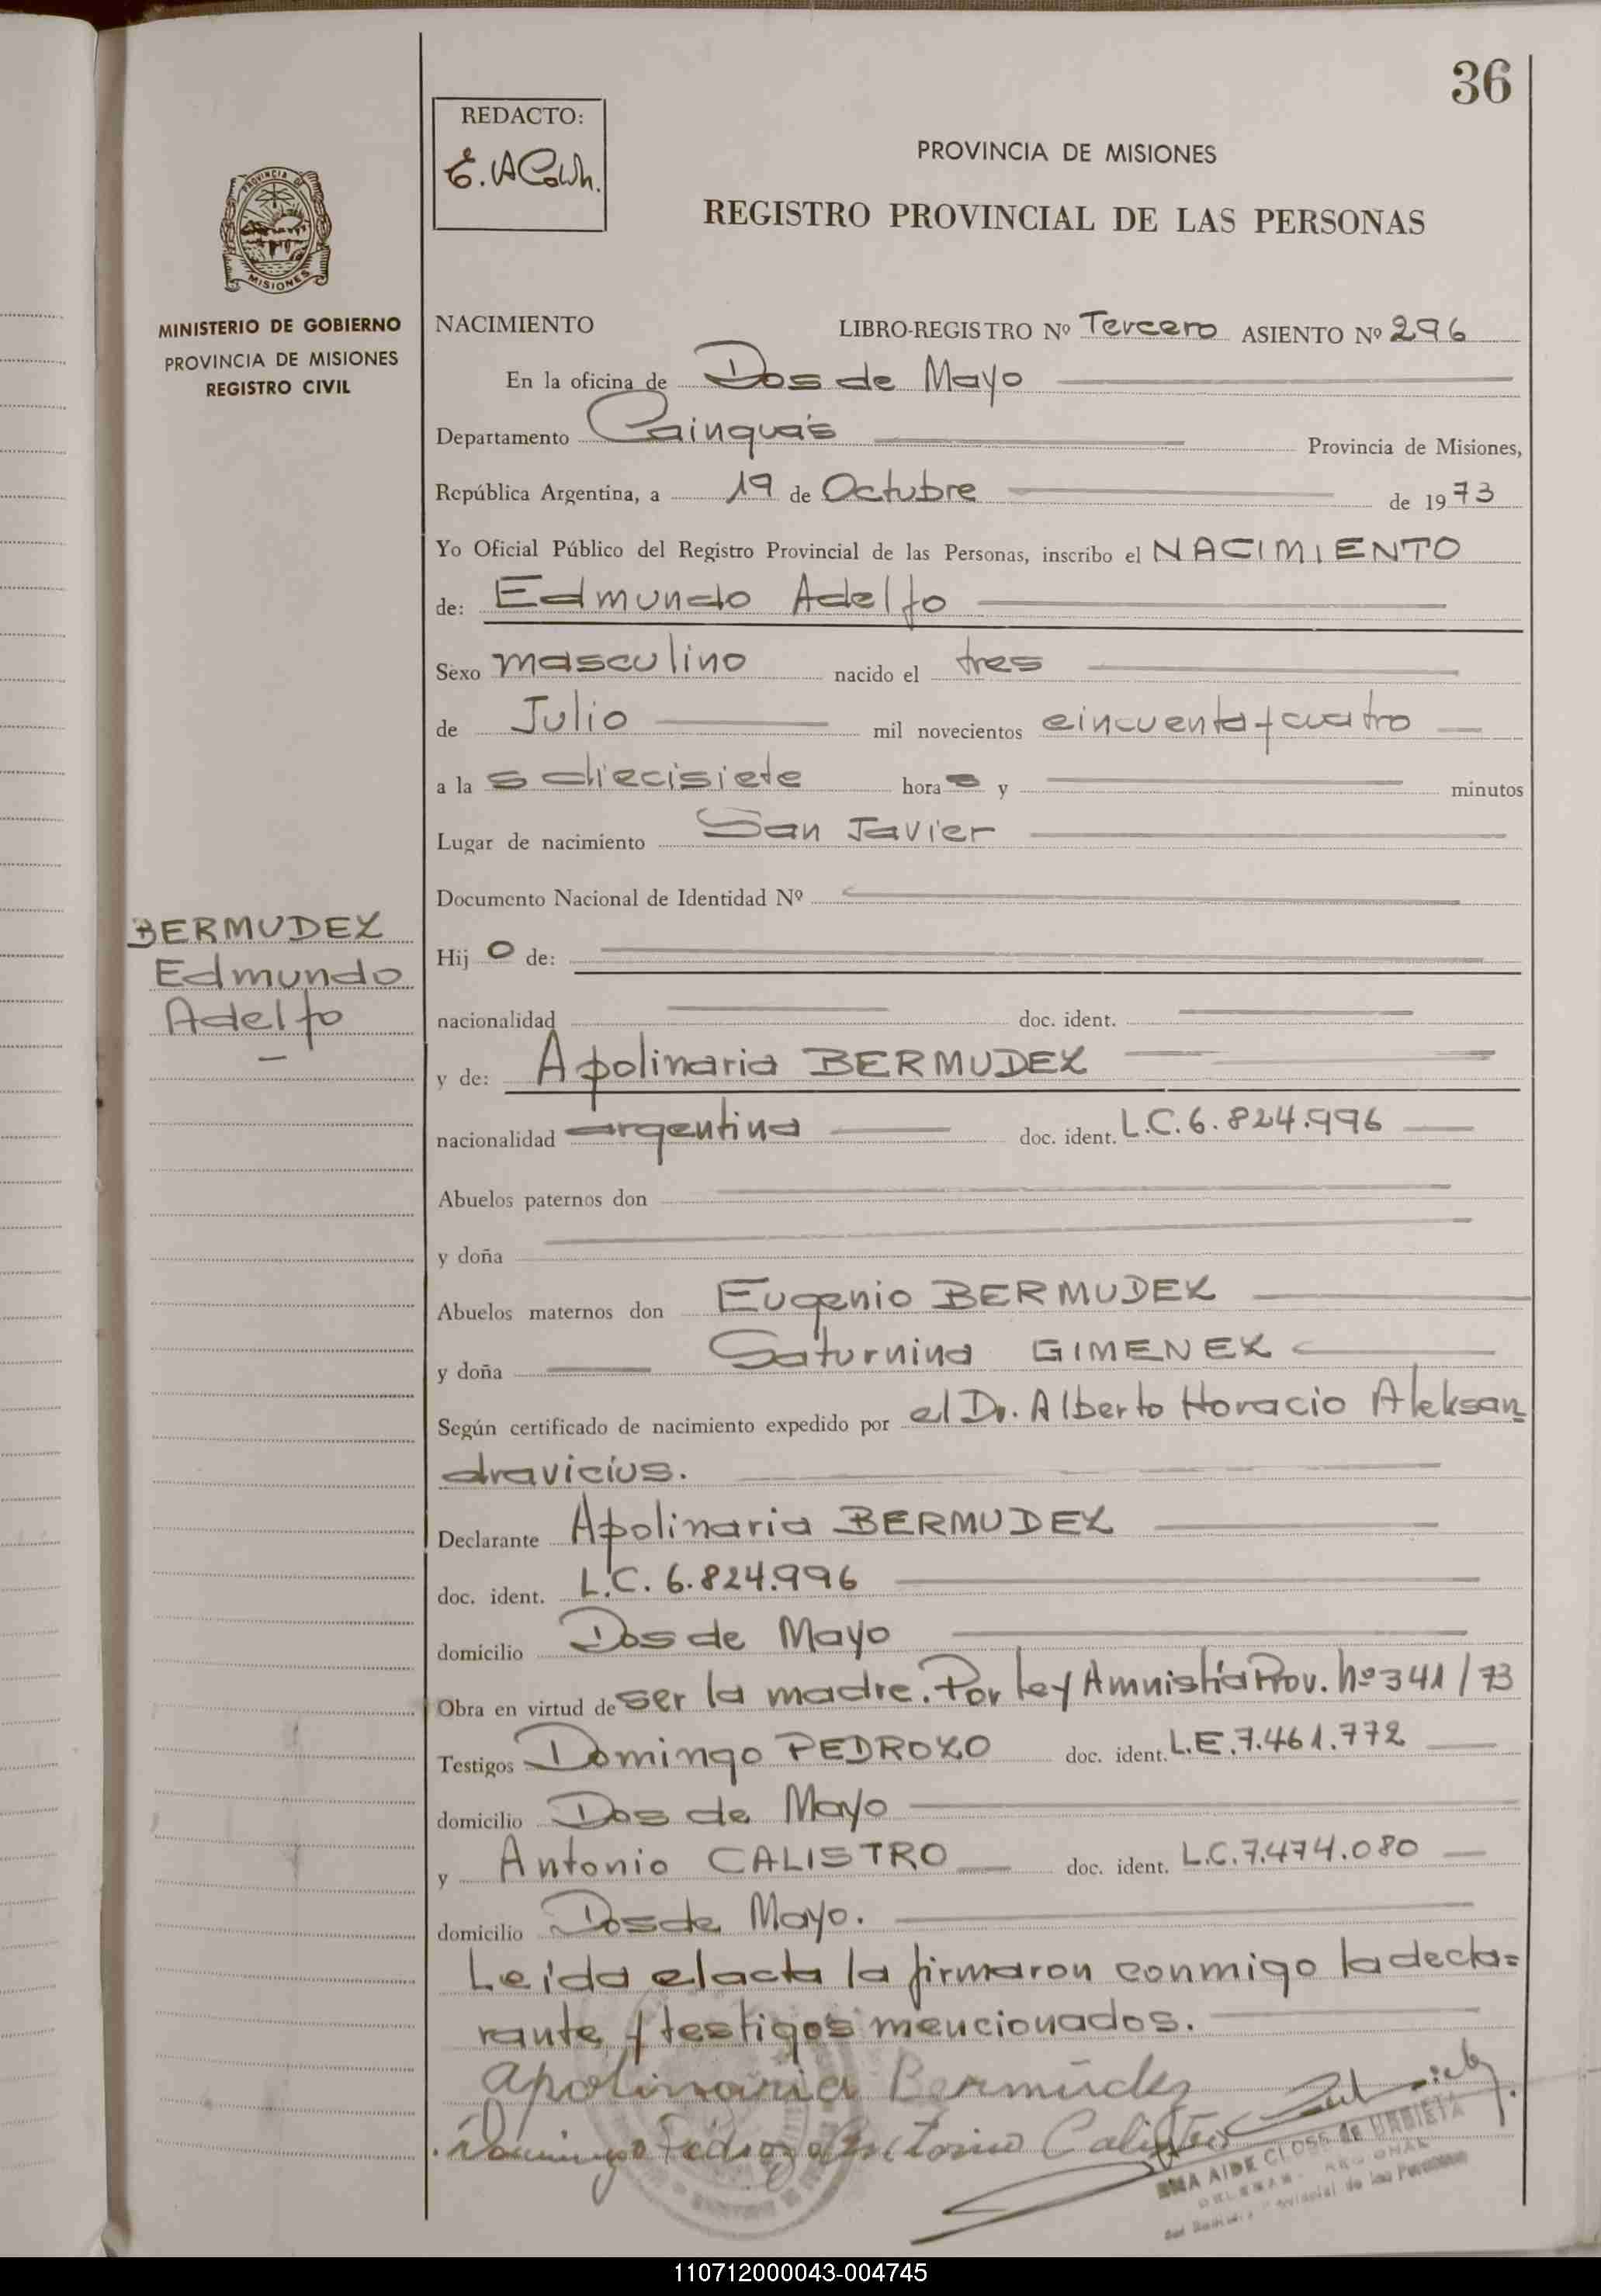 36
REDACTO:
PROVINCIA DE MISIONES
REGISTRO PROVINCIAL DE LAS PERSONAS
PROVINCIA DE
MISIONES
MINISTERIO DE GOBIERNO
PROVINCIA DE MISIONES
REGISTRO CIVIL
NACIMIENTO LIBRO-REGISTRO Nº Tercero ASIENTO Nº 296
En la oficina de Dos de Mayo
Departamento Cainguás Provincia de Misiones,
República Argentina, a 19 de Octubre de 1973
Yo Oficial Público del Registro Provincial de las Personas, inscribo el NACIMIENTO
de: Edmundo Adelfo
Sexo masculino nacido el tres
de Julio mil novecientos cincuenta y cuatro
a las diecisiete horas y minutos
Lugar de nacimiento San Javier
Documento Nacional de Identidad Nº
BERMUDEZ
Edmundo
Adelfo
Hijo de:
nacionalidad doc. ident.
y de: Apolinaria BERMUDEZ
nacionalidad argentina doc. ident. L.C. 6.824.996
Abuelos paternos don
y doña
Abuelos maternos don Eugenio BERMUDEZ
y doña Saturnina GIMENEZ
Según certificado de nacimiento expedido por el Dr. Alberto Horacio Aleksan=
dravicius.
Declarante Apolinaria BERMUDEZ
doc. ident. L.C. 6.824.996
domicilio Dos de Mayo
Obra en virtud de ser la madre. Por ley Amnistía Prov. Nº 341/73
Testigos Domingo PEDROZO doc. ident. L.E. 7.461.772
domicilio Dos de Mayo
y Antonio CALISTRO doc. ident. L.C. 7.474.080
domicilio Dos de Mayo.
Leida el acta la firmaron conmigo la decla=
rante y testigos mencionados.
Apolinaria Bermúdez
Domingo Pedrozo Antonio Calistro
AIDE CLOSS de URRIETA
Provincial de las Personas
110712000043-004745